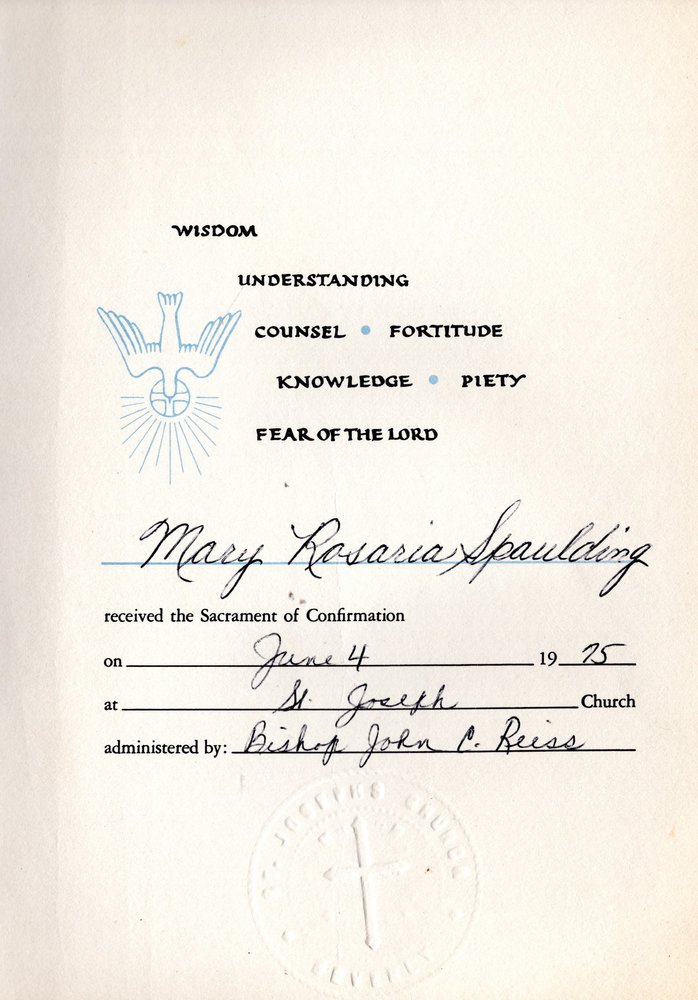 WISDOM
UNDERSTANDING
COUNSEL • FORTITUDE
KNOWLEDGE • PIETY
FEAR OF THE LORD
Mary Rosaria Spaulding
received the Sacrament of Confirmation
on June 4 19 75
at St. Joseph Church
administered by: Bishop John C. Reiss
ST. JOSEPHS CHURCH
BEVERLY